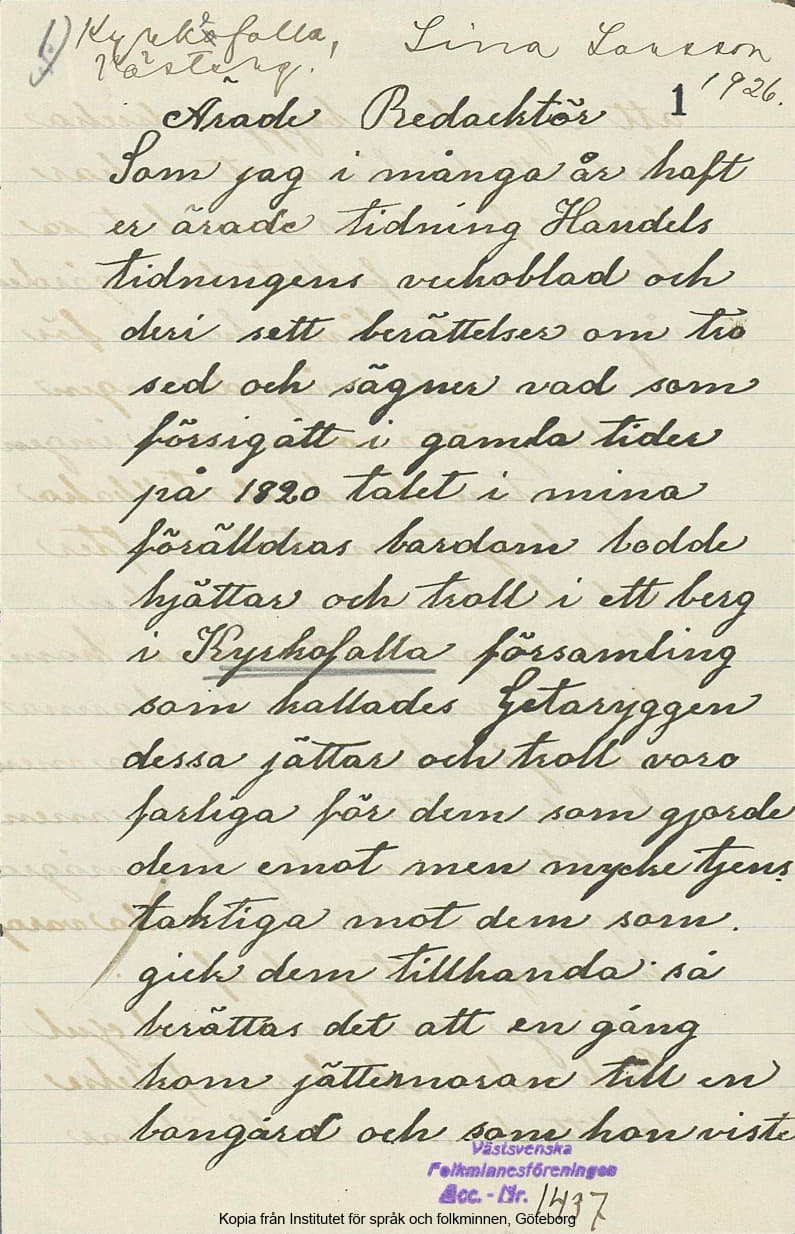 1) Kyrkefalla, Lina Larsson
Västerg. 1926.
1
Ärade Redacktör
Som jag i många år haft
er ärade tidning Handels
tidningens veckoblad och
deri sett berättelser om tro
sed och sägner vad som
försigått i gamla tider
på 1820 talet i mina
förälldras bardom bodde
hjättar och troll i ett berg
i Kyrkofalla församling
som kallades Getaryggen
dessa jättar och troll voro
farliga för dem som gjorde
dem emot men mycke tjens
taktiga mot dem som.
gick dem tillhanda så
berättas det att en gång
kom jättemoran till en
bongård och som hon viste
Västsvenska
Folkminnesföreningen
Acc. - Nr. 1437
Kopia från Institutet för språk och folkminnen, Göteborg